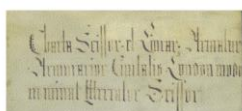 Charta Scissor et Linear: Armatur
Armurarior Civitatis London modo
nominat Mercator Scissor